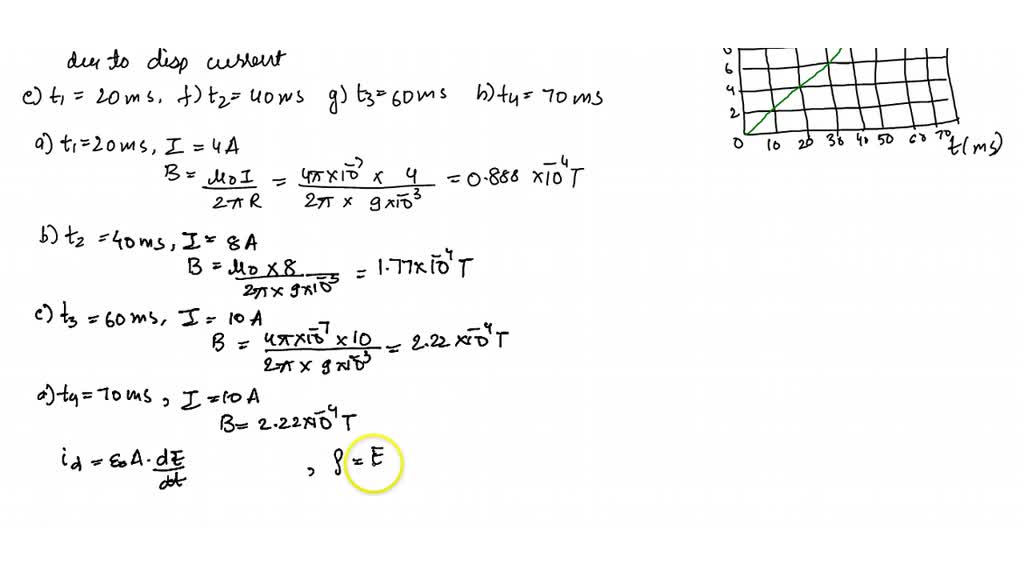 due to disp current
e) t₁ = 20ms, f) t₂ = 40ms g) t₃ = 60ms h) t₄ = 70ms
a) t₁ = 20ms, I = 4A
B = μ₀I / 2πR = 4π×10⁻⁷ × 4 / 2π × 9×10⁻³ = 0.888 ×10⁻⁴ T
b) t₂ = 40ms, I = 8A
B = μ₀ × 8 / 2π × 9×10⁻³ = 1.77×10⁻⁴ T
c) t₃ = 60ms, I = 10A
B = 4π×10⁻⁷ × 10 / 2π × 9×10⁻³ = 2.22 ×10⁻⁴ T
d) t₄ = 70ms, I = 10A
B = 2.22×10⁻⁴ T
i_d = ε₀A · dE/dt , ρ = E
6
4
2
0 10 20 30 40 50 60 70 t(ms)